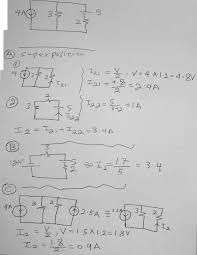 4A
3
2
5
Ⓐ superposition
①
4
3
2
I21
I21 = V/2, V = 4 × 1.2 = 4.8V
I21 = 4.8/2 = 2.4A
②
3
2
5
I22
I22 = 5/3+2 = 1A
I2 = I21 + I22 = 3.4A
Ⓑ
3
12V
5
2
⇒ I2 = 17/5 = 3.4
Ⓒ
4A
3
2
2.5A
≡
1.5A
3
2
I2
I2 = V/2, V = 1.5 × 1.2 = 1.8V
I2 = 1.8/2 = 0.9A